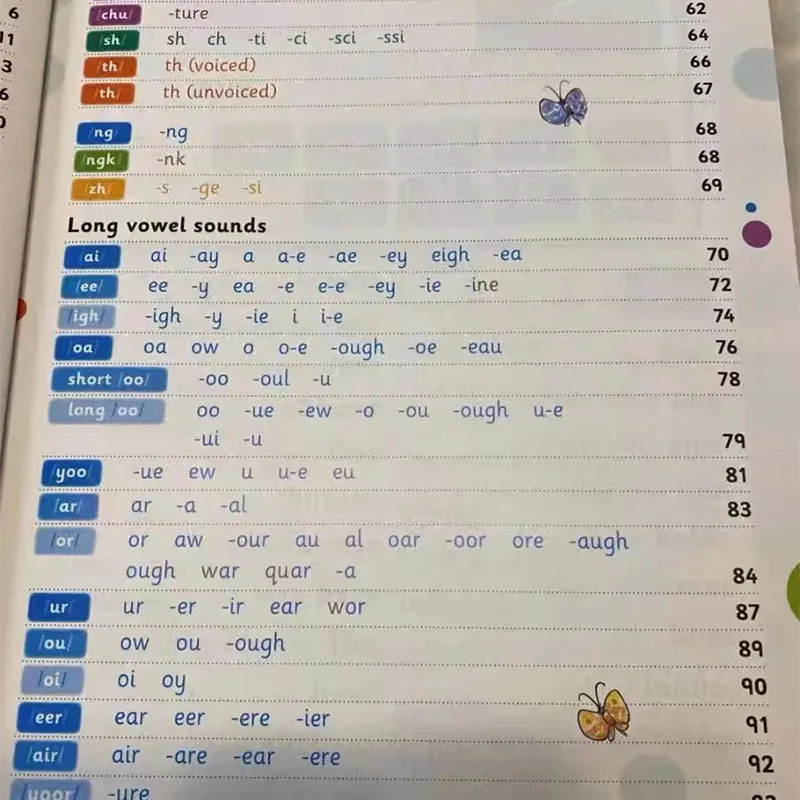 6
11
3
6
/chu/ -ture 62
/sh/ sh ch -ti -ci -sci -ssi 64
/th/ th (voiced) 66
/th/ th (unvoiced) 67
/ng/ -ng 68
/ngk/ -nk 68
/zh/ -s -ge -si 69
Long vowel sounds
/ai/ ai -ay a a-e -ae -ey eigh -ea 70
/ee/ ee -y ea -e e-e -ey -ie -ine 72
/igh/ -igh -y -ie i i-e 74
/oa/ oa ow o o-e -ough -oe -eau 76
short /oo/ -oo -oul -u 78
long /oo/ oo -ue -ew -o -ou -ough u-e
-ui -u 79
/yoo/ -ue ew u u-e eu 81
/ar/ ar -a -al 83
/or/ or aw -our au al oar -oor ore -augh
ough war quar -a 84
/ur/ ur -er -ir ear wor 87
/ou/ ow ou -ough 89
/oi/ oi oy 90
/eer/ ear eer -ere -ier 91
/air/ air -are -ear -ere 92
/yoor/ -ure